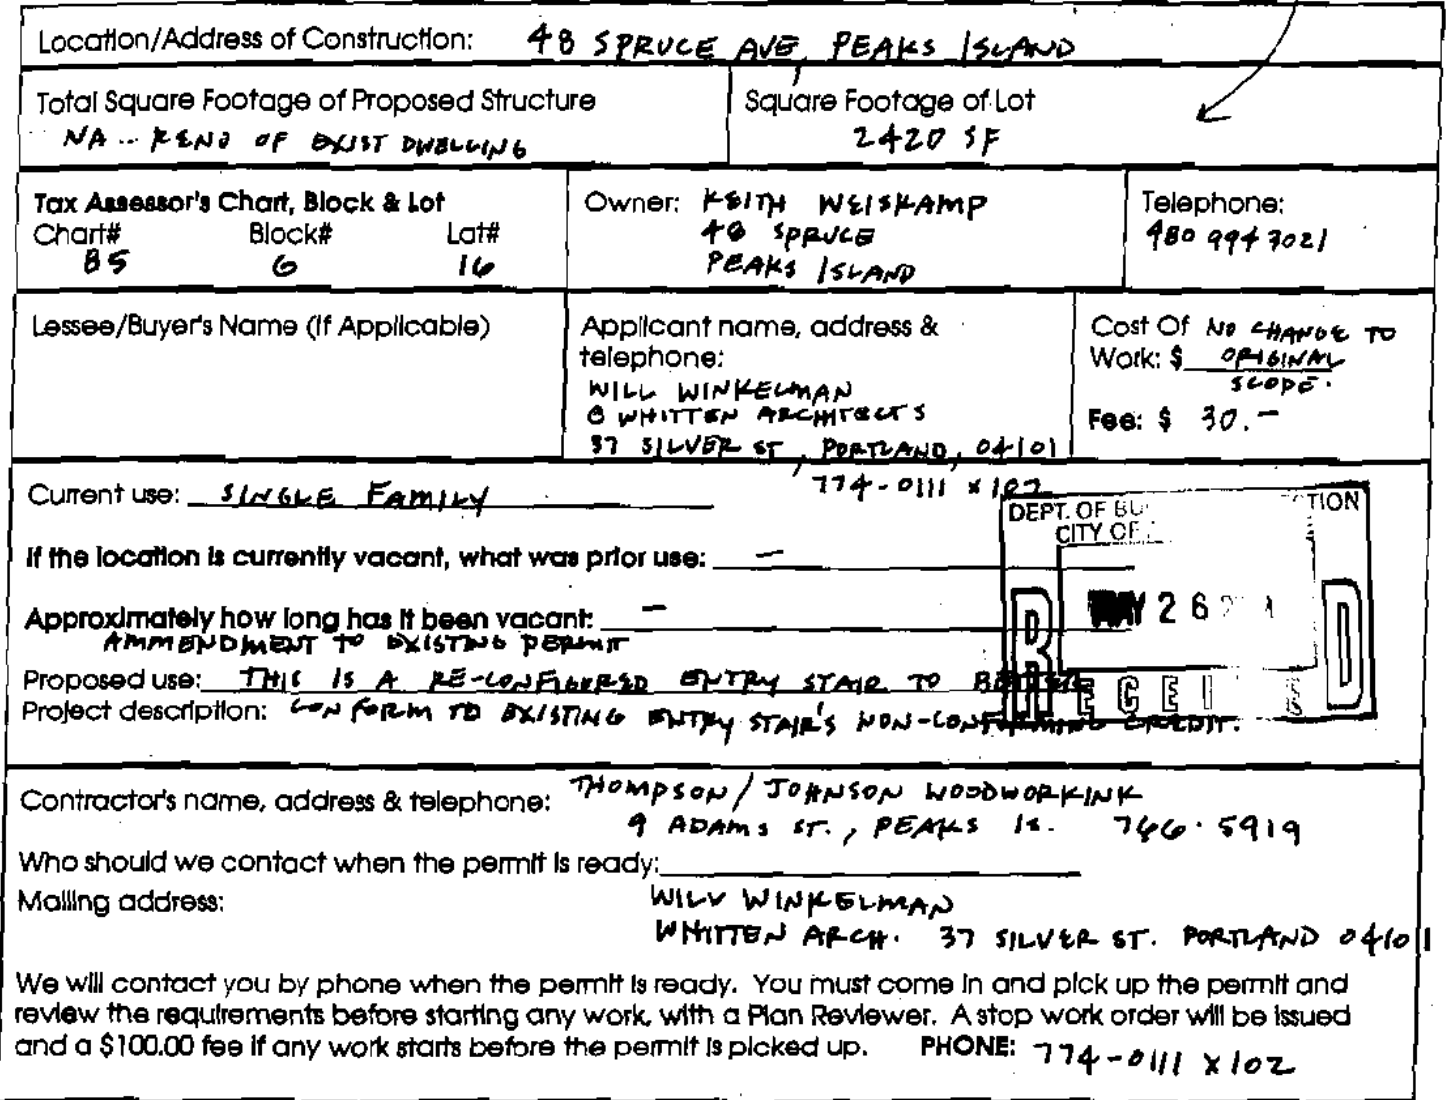 Location/Address of Construction: 48 SPRUCE AVE, PEAKS ISLAND
Total Square Footage of Proposed Structure
NA ... RENO OF EXIST DWELLING
Square Footage of Lot
2420 SF
Tax Assessor's Chart, Block & Lot
Chart# Block# Lot#
85 6 16
Owner: KEITH WEISKAMP
48 SPRUCE
PEAKS ISLAND
Telephone:
480 994 7021
Lessee/Buyer's Name (If Applicable)
Applicant name, address &
telephone:
WILL WINKELMAN
@ WHITTEN ARCHITECTS
37 SILVER ST, PORTLAND, 04101
774-0111 x 102
Cost Of NO CHANGE TO
Work: $ ORIGINAL
SCOPE.
Fee: $ 30.-
Current use: SINGLE FAMILY
If the location is currently vacant, what was prior use: —
Approximately how long has it been vacant: —
AMMENDMENT TO EXISTING PERMIT
Proposed use: THIS IS A RE-CONFIGURED ENTRY STAIR TO BETTER
Project description: CONFORM TO EXISTING ENTRY STAIR'S NON-CONFORMING CREDIT.
DEPT. OF BU TION
CITY OF
MAY 26
RECEI D
Contractor's name, address & telephone: THOMPSON/JOHNSON WOODWORKINK
9 ADAMS ST., PEAKS IS. 766.5919
Who should we contact when the permit is ready:
Mailing address: WILL WINKELMAN
WHITTEN ARCH. 37 SILVER ST. PORTLAND 04101
We will contact you by phone when the permit is ready. You must come in and pick up the permit and
review the requirements before starting any work, with a Plan Reviewer. A stop work order will be issued
and a $100.00 fee if any work starts before the permit is picked up. PHONE: 774-0111 x 102